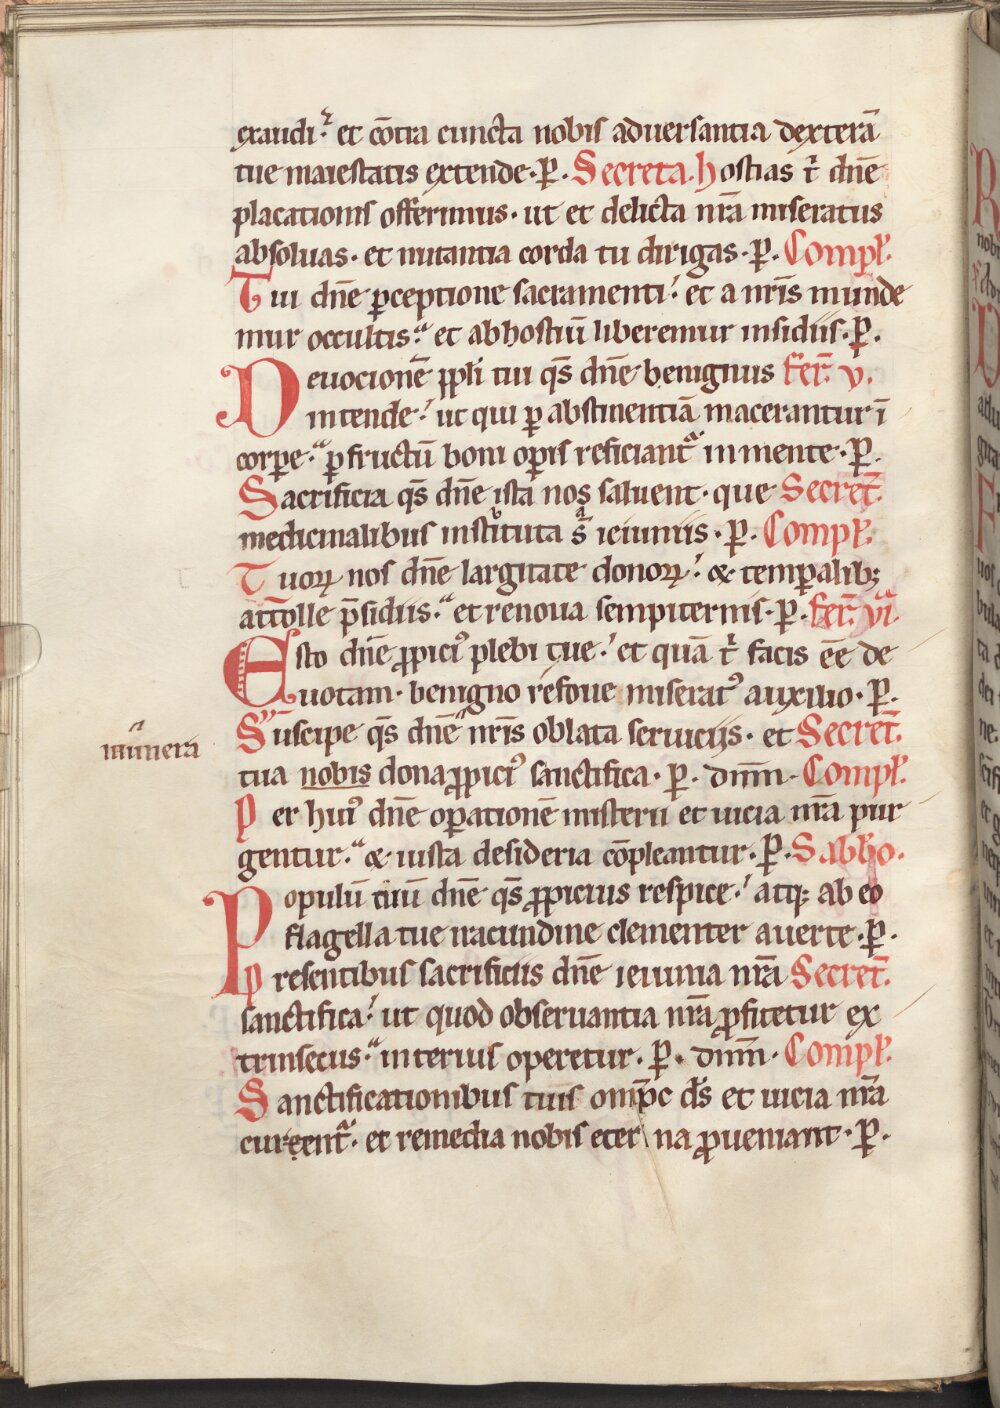 exaudi. et cōtra cuncta nobis aduersantia dexterā
tue maiestatis extende. P. Secreta. hostias t̄ dn̄e
placationis offerimus. ut et delicta nr̄a miseratus
absoluas. et nutantia corda tu dirigas. P. Compl.
Tui dn̄e ꝑceptione sacramenti. et a nr̄is munde
mur occultis. et ab hostiū liberemur insidiis. P.
Deuocionē ppli tui qs̄ dn̄e benignus fer. v.
intende. ut qui ꝑ abstinentiā macerantur ī
corpe. ꝑ fructū boni opis reficiant᷑ in mente. P.
Sacrificia qs̄ dn̄e ista nos saluent. que Secret.
medicinalibus instituta s̄ ieiuniis. P. Compl.
Tuoꝝ nos dn̄e largitate donoꝝ. & temꝑalib;
attolle p̄sidiis. et renoua sempiternis. P. fer. vi.
Esto dn̄e ꝓpici⁹ plebi tue. et quā t̄ facis ēē de
uotam. benigno refoue miserat⁹ auxilio. P.
Suscipe qs̄ dn̄e nr̄is oblata seruiciis. et Secret.
munera
tua nobis dona ꝓpici⁹ sanctifica. P. dnm̄. Compl.
Per hui⁹ dn̄e oꝑationē misterii et uicia nr̄a pur
gentur. & iusta desideria cōpleantur. P. Sabbo.
Populū tuū dn̄e qs̄ ꝓpicius respice. atq; ab eo
flagella tue iracundine clementer auerte. P.
presentibus sacrificiis dn̄e ieiunia nr̄a Secret.
sanctifica. ut quod obseruantia nr̄a ꝓfitetur ex
trinsecus. interius operetur. P. dnm̄. Compl.
Sanctificationibus tuis omp̄c ds̄ et uicia nr̄a
curent᷑. et remedia nobis eterna ꝓueniant. P.